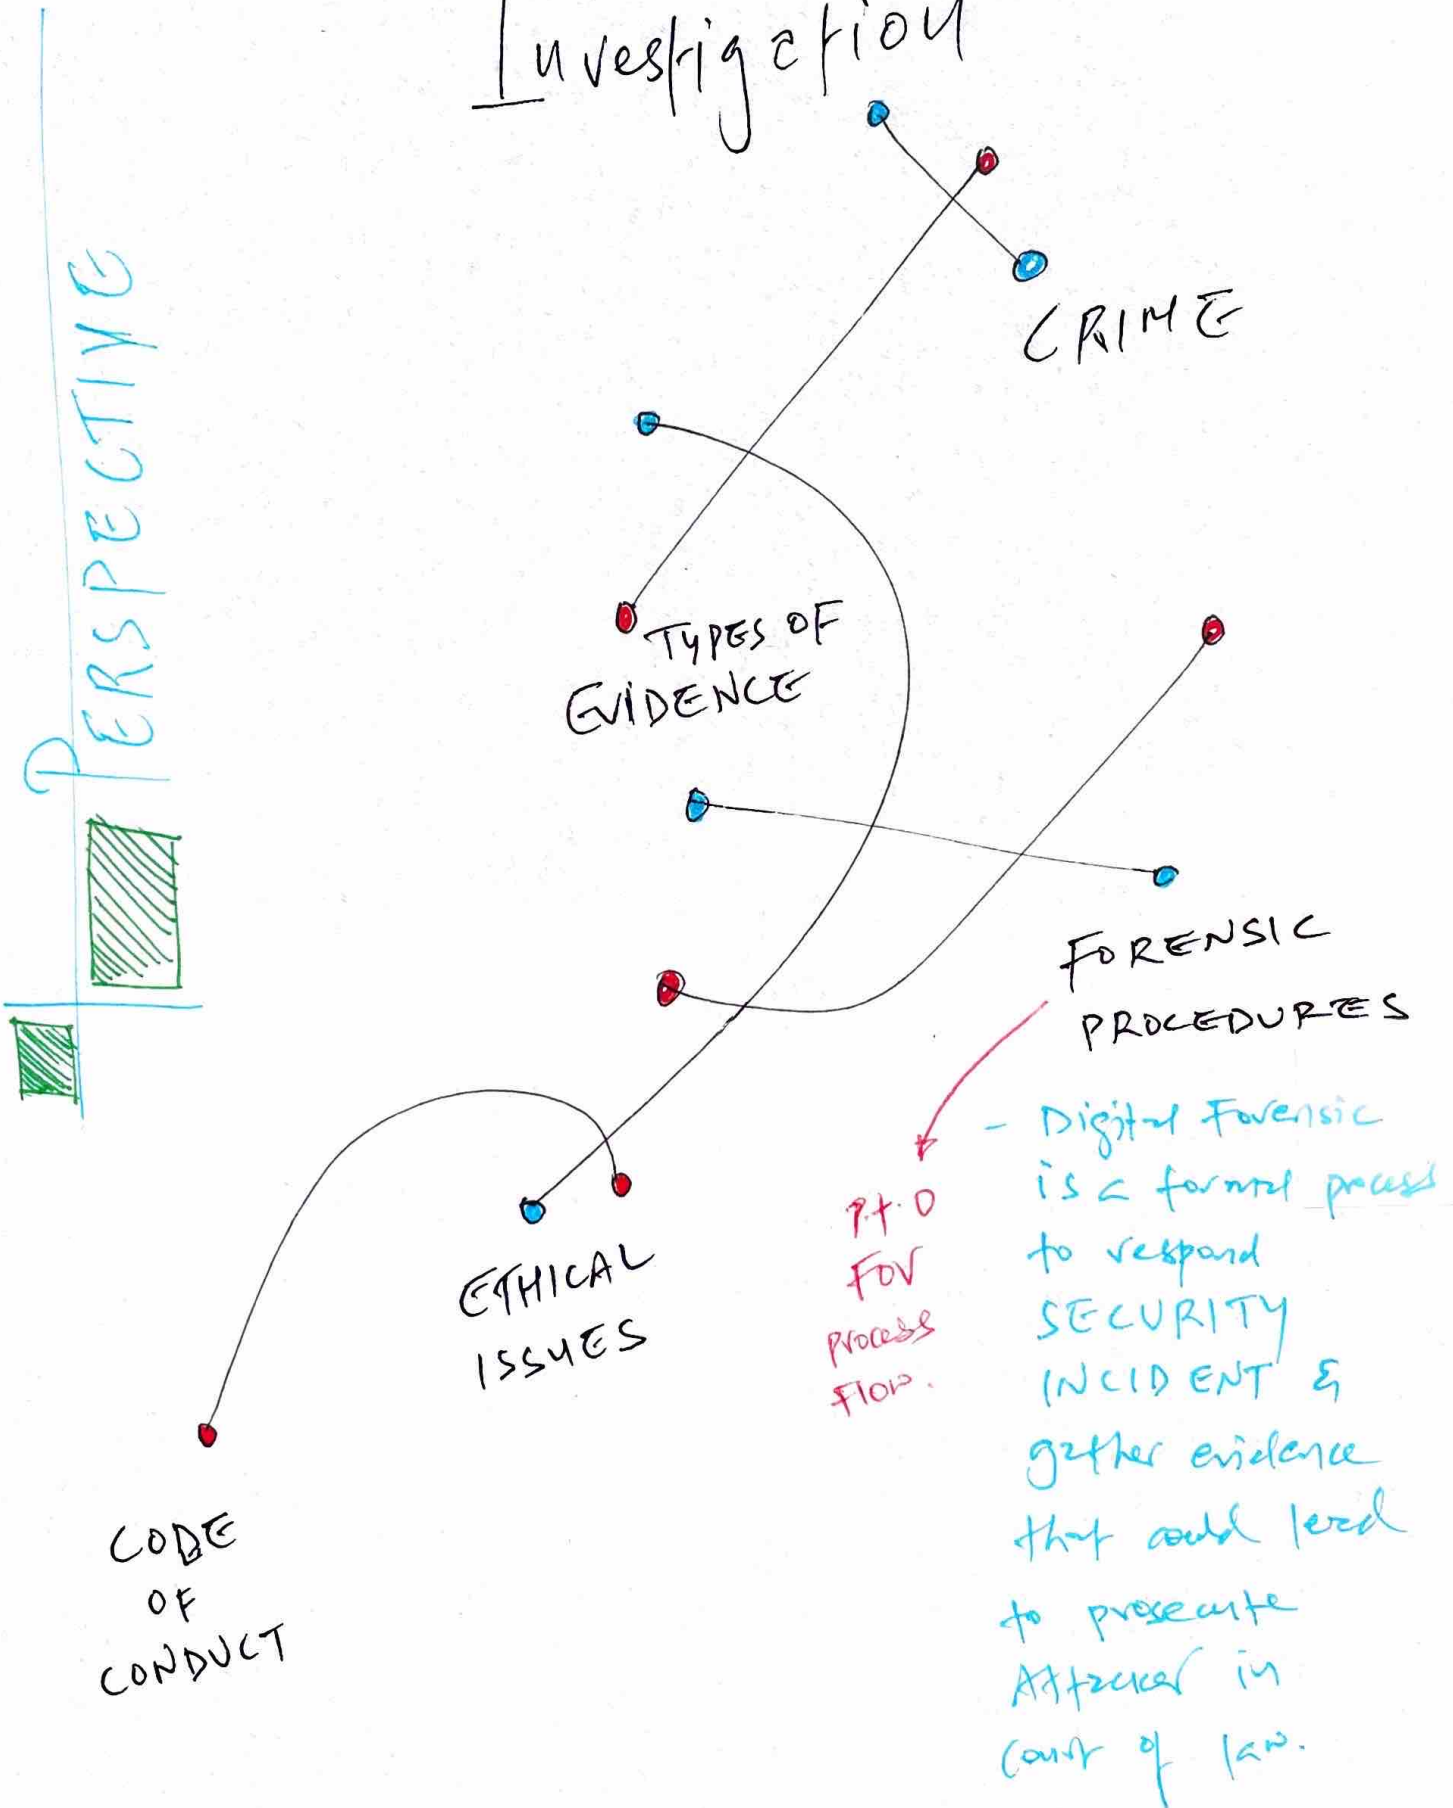 Investigation
PERSPECTIVE
CRIME
TYPES OF
EVIDENCE
FORENSIC
PROCEDURES
- Digital Forensic
is a formal process
to respond
SECURITY
INCIDENT &
gather evidence
that could lead
to prosecute
Attacker in
court of law.
P.t.O
FOr
process
Flow.
ETHICAL
ISSUES
CODE
OF
CONDUCT